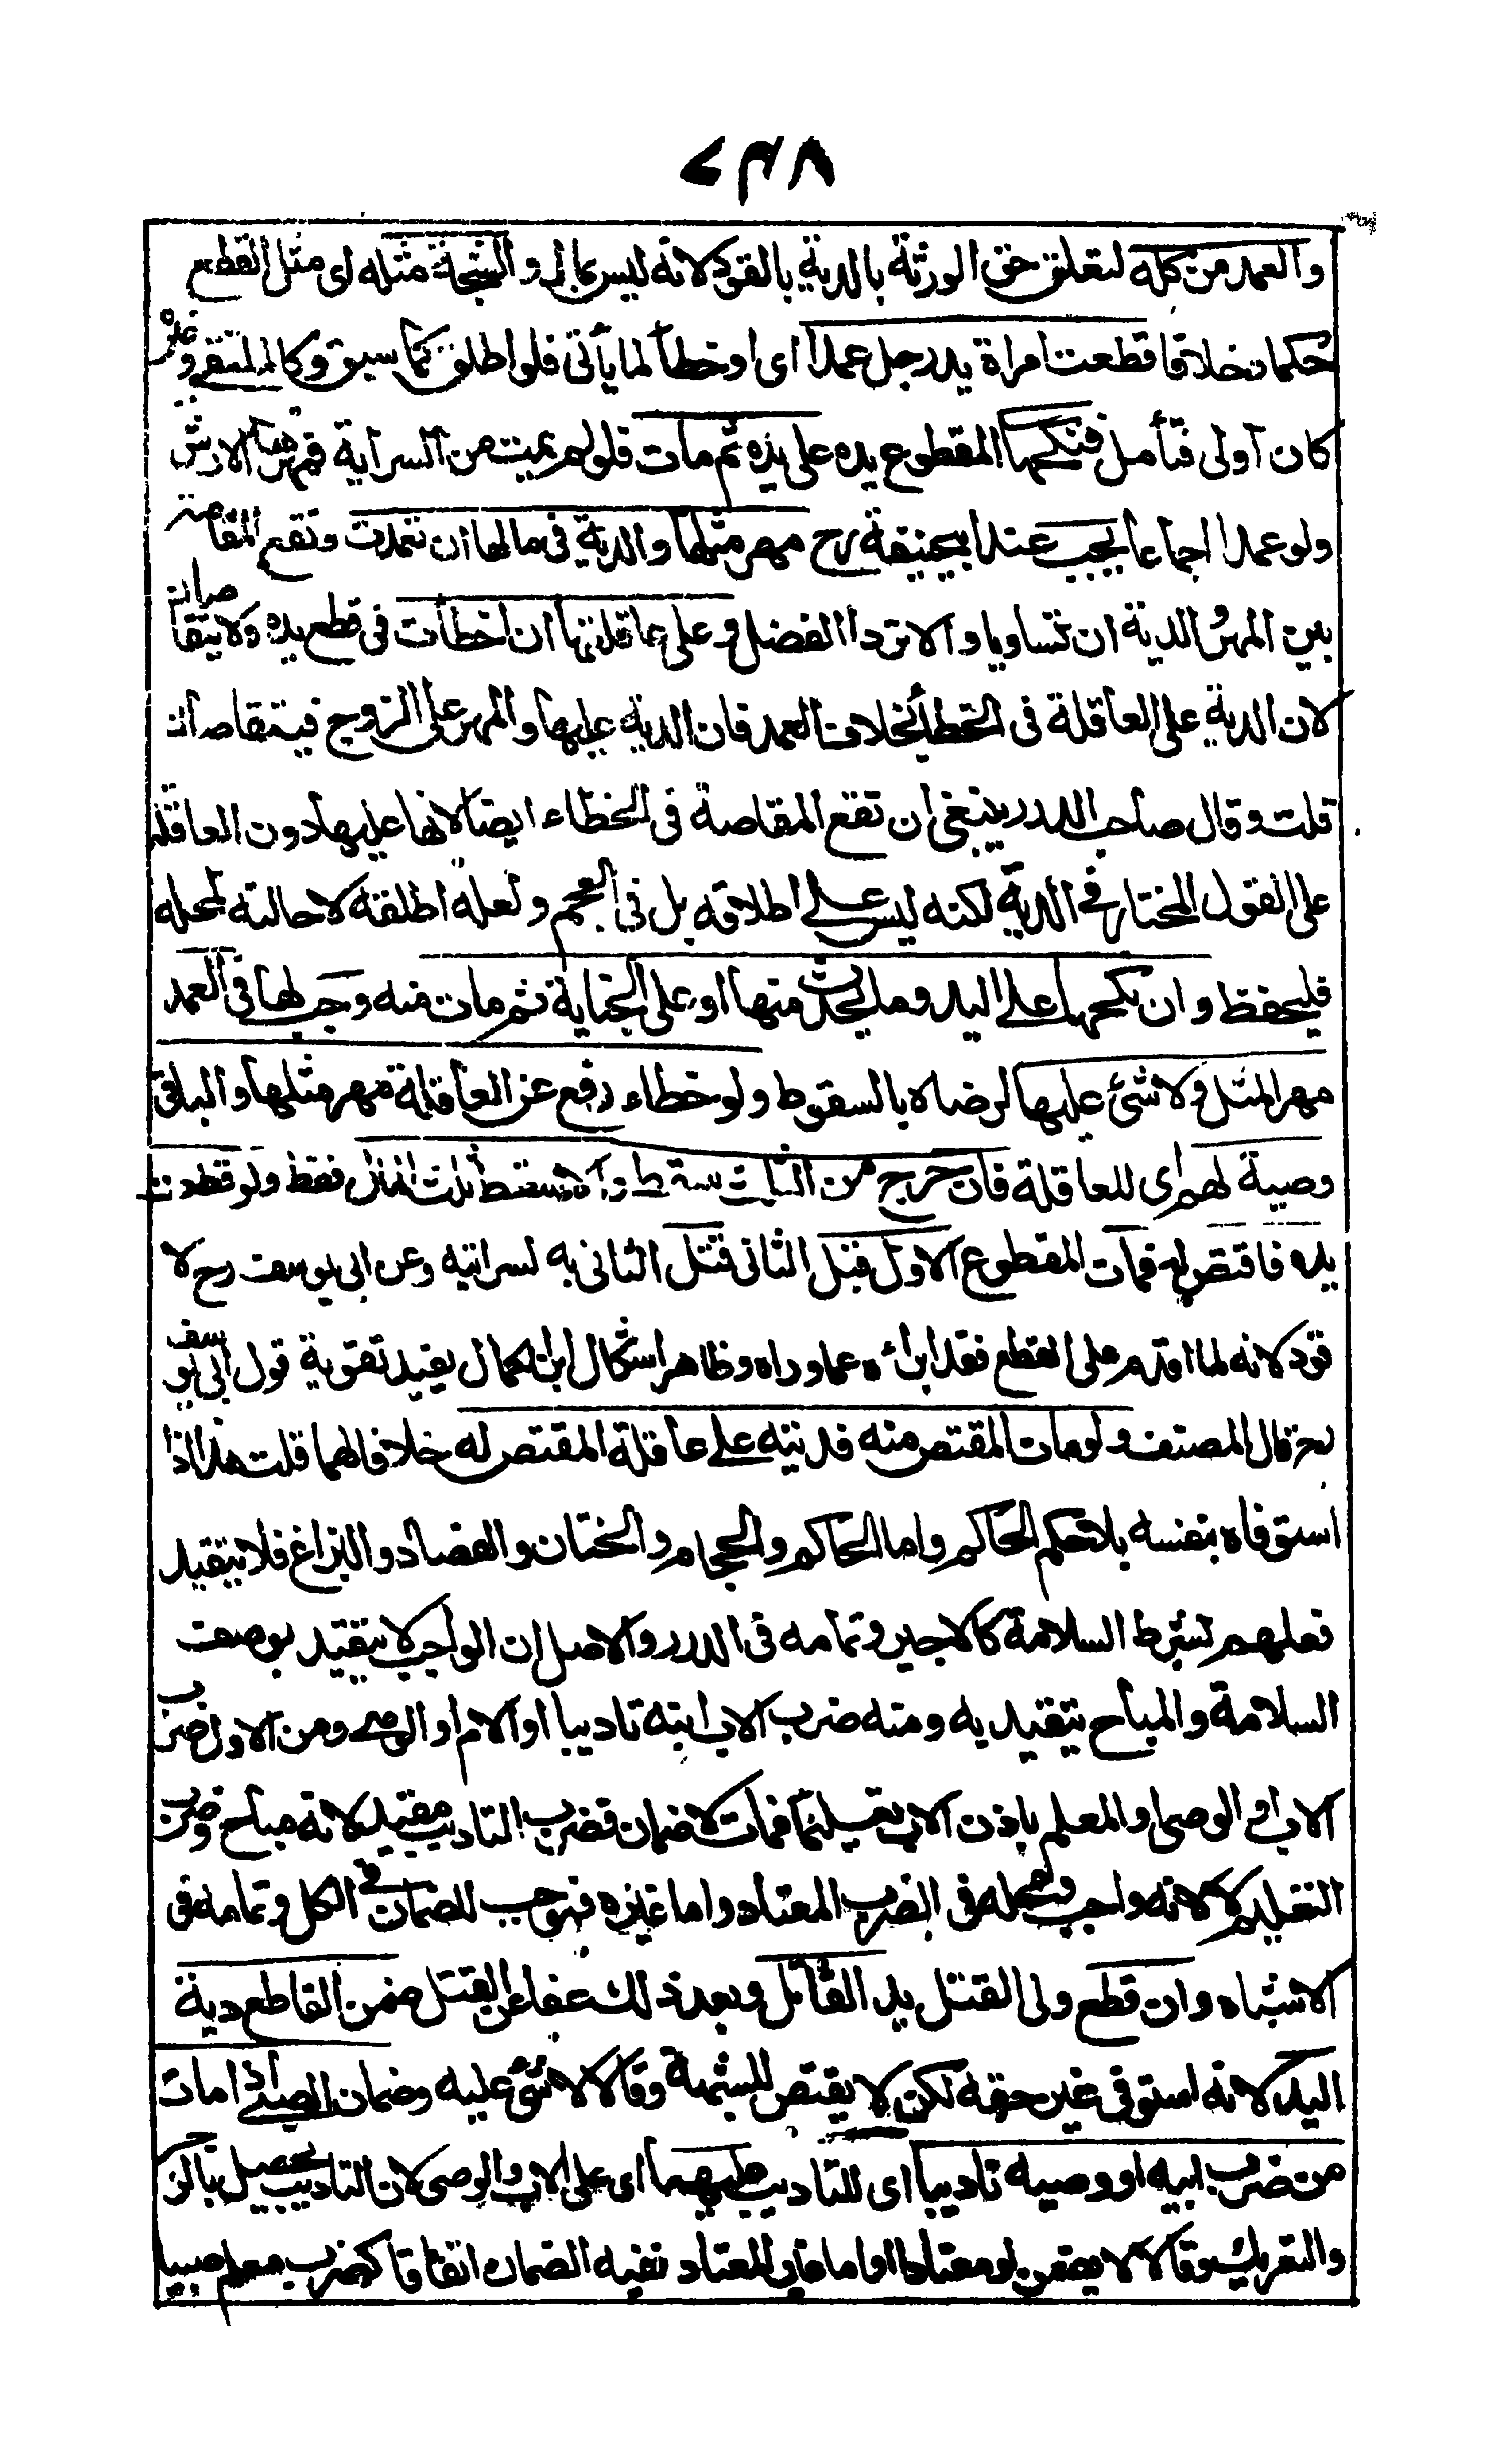 ۷۳۸
والعمد من كله لتعلق حق الورثة بالدية بالقود لانه ليس بمال والشجة مثله اى مثل القطع
حكما وخلافا قطعت امراة يد رجل عمدا اى او خطأ لما يأتى فلو اطلق كما سبق وكالملتقى وغيره
كان اولى فتأمل فنكحها المقطوع يده على يده ثم مات فلو لم يمت من السراية فمهرها الارش
ولو عمدا اجماعا يجب عند ابيحنيفة رح مهر مثلها والدية فى مالها ان تعمدت وتقع المقاصة
بين المهر والدية ان تساويا والا ترد الفضل وعلى عاقلتها ان اخطأت فى قطع يده ولا يتقاصان
لان الدية على العاقلة فى الخطأ بخلاف العمد فان الدية عليها والمهر على الزوج فيتقاصان
قلت وقال صاحب الدرر ينبغى ان تقع المقاصة فى الخطاء ايضا لانها عليها دون العاقلة
على القول المختار فى الدية لكنه ليس على اطلاقه بل فى العجم ولعله اطلقه لاحالته لمحله
فليحفظ وان نكحها على اليد وما يحدث منها او على الجناية ثم مات منه وجب لها فى العمد
مهر المثل ولا شئ عليها لرضاه بالسقوط ولو خطاء رفع عن العاقلة مهر مثلها والباقى
وصية لهم اى للعاقلة فان خرج من الثلث سقط والا سقط ثلث المال فقط ولو قطعت
يده فاقتص له فمات المقطوع الاول قبل الثانى قتل الثانى به لسرايته وعن ابى يوسف رح لا
قود لانه لما اقدم على القطع فقد ابراءه عما وراه وظاهر اشكال ابن الكمال يفيد تقوية قول ابى يوسف
رح قال المصنف ولو مات المقتص منه فديته على عاقلة المقتص له خلافا لهما قلت هذا اذا
استوفاه بنفسه بلا حكم الحاكم واما الحاكم والحجام والختان والفصاد والبزاغ فلا يتقيد
فعلهم بشرط السلامة كالاجير وتمامه فى الدرر والاصل ان الواجب لا يتقيد بوصف
السلامة والمباح يتقيد به ومنه ضرب الاب ابنه تاديبا او الام او الوصى ومن الاول ضرب
الاب او الوصى او المعلم باذن الاب تعليما فمات لا ضمان فضرب التاديب مقيد لانه مباح وضرب
التعليم لا لانه واجب ومحله فى الضرب المعتاد واما غيره فموجب للضمان فى الكل وتمامه فى
الاشباه وان قطع ولى القتل يد القاتل وبعد ذلك عفا عن القتل ضمن القاطع دية
اليد لانه استوفى غير حقه لكن لا يقتص للشبهة وقالا لا شئ عليه وضمان الصبى اذا مات
من ضرب ابيه او وصيه تاديبا اى للتاديب عليهما اى على الاب والوصى لان التاديب يحصل بالزجر
والتعريك وقالا لا يضمن لو معتادا واما غير المعتاد ففيه الضمان اتفاقا كضرب معلم صبيا